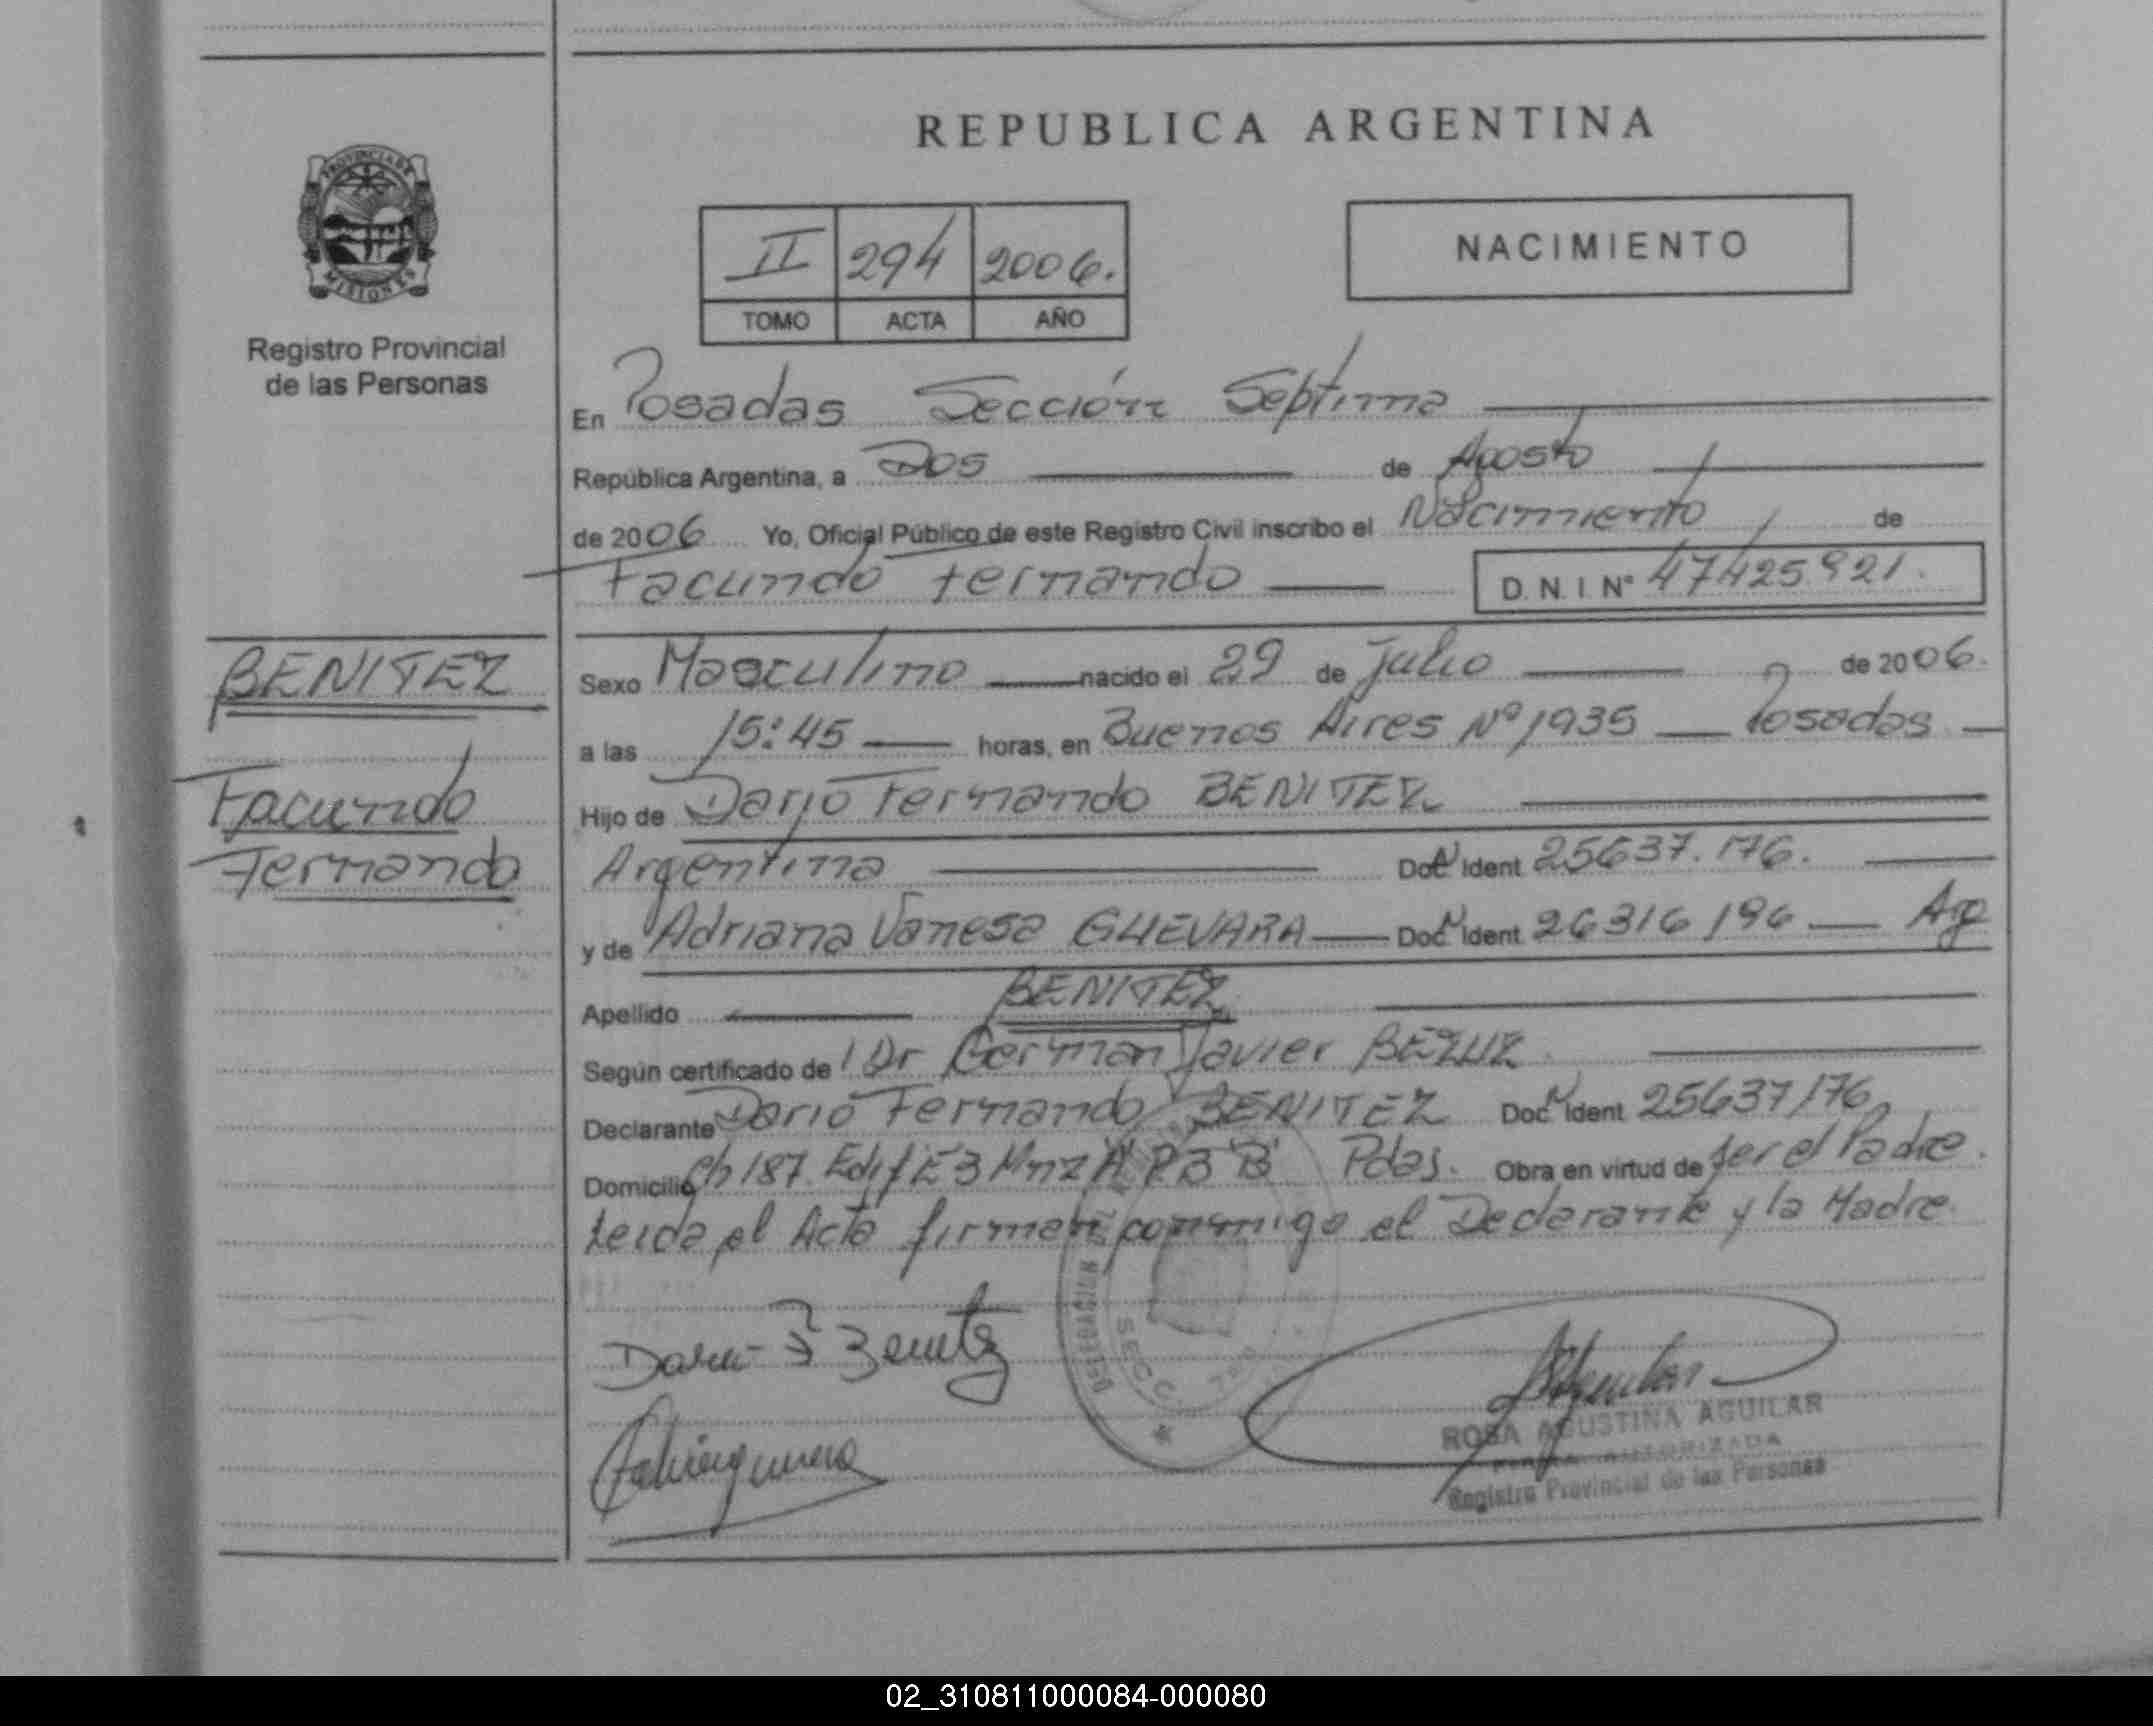 REPUBLICA ARGENTINA
PROVINCIA DE
MISIONES
Registro Provincial
de las Personas
II 294 2006.
TOMO ACTA AÑO
NACIMIENTO
En Posadas Sección Septima
República Argentina, a Dos de Agosto
de 2006 Yo, Oficial Público de este Registro Civil inscribo el Nacimiento de
Facundo Fernando D.N.I.N° 47425921.
BENITEZ
Facundo
Fernando
Sexo Masculino nacido el 29 de Julio de 2006.
a las 15:45 horas, en Buenos Aires Nº 1935 Posadas
Hijo de Dario Fernando BENITEZ
Argentina Doc Ident 25637.176.
y de Adriana Vanesa GUEVARA Doc Ident 26316196 Arg
Apellido BENITEZ
Según certificado de Dr German Javier BEZUZ
Declarante Dario Fernando BENITEZ Doc Ident 25637176
Domicilio Ch 187 Edif E3 Mnz A P3 B Pdas. Obra en virtud de ser el Padre.
Leida el Acta firman conmigo el Declarante y la Madre.
Dario F Benitez
DELEGACION
SECC. 7ma
ROSA AGUSTINA AGUILAR
AUTORIZADA
Registro Provincial de las Personas
02_310811000084-000080